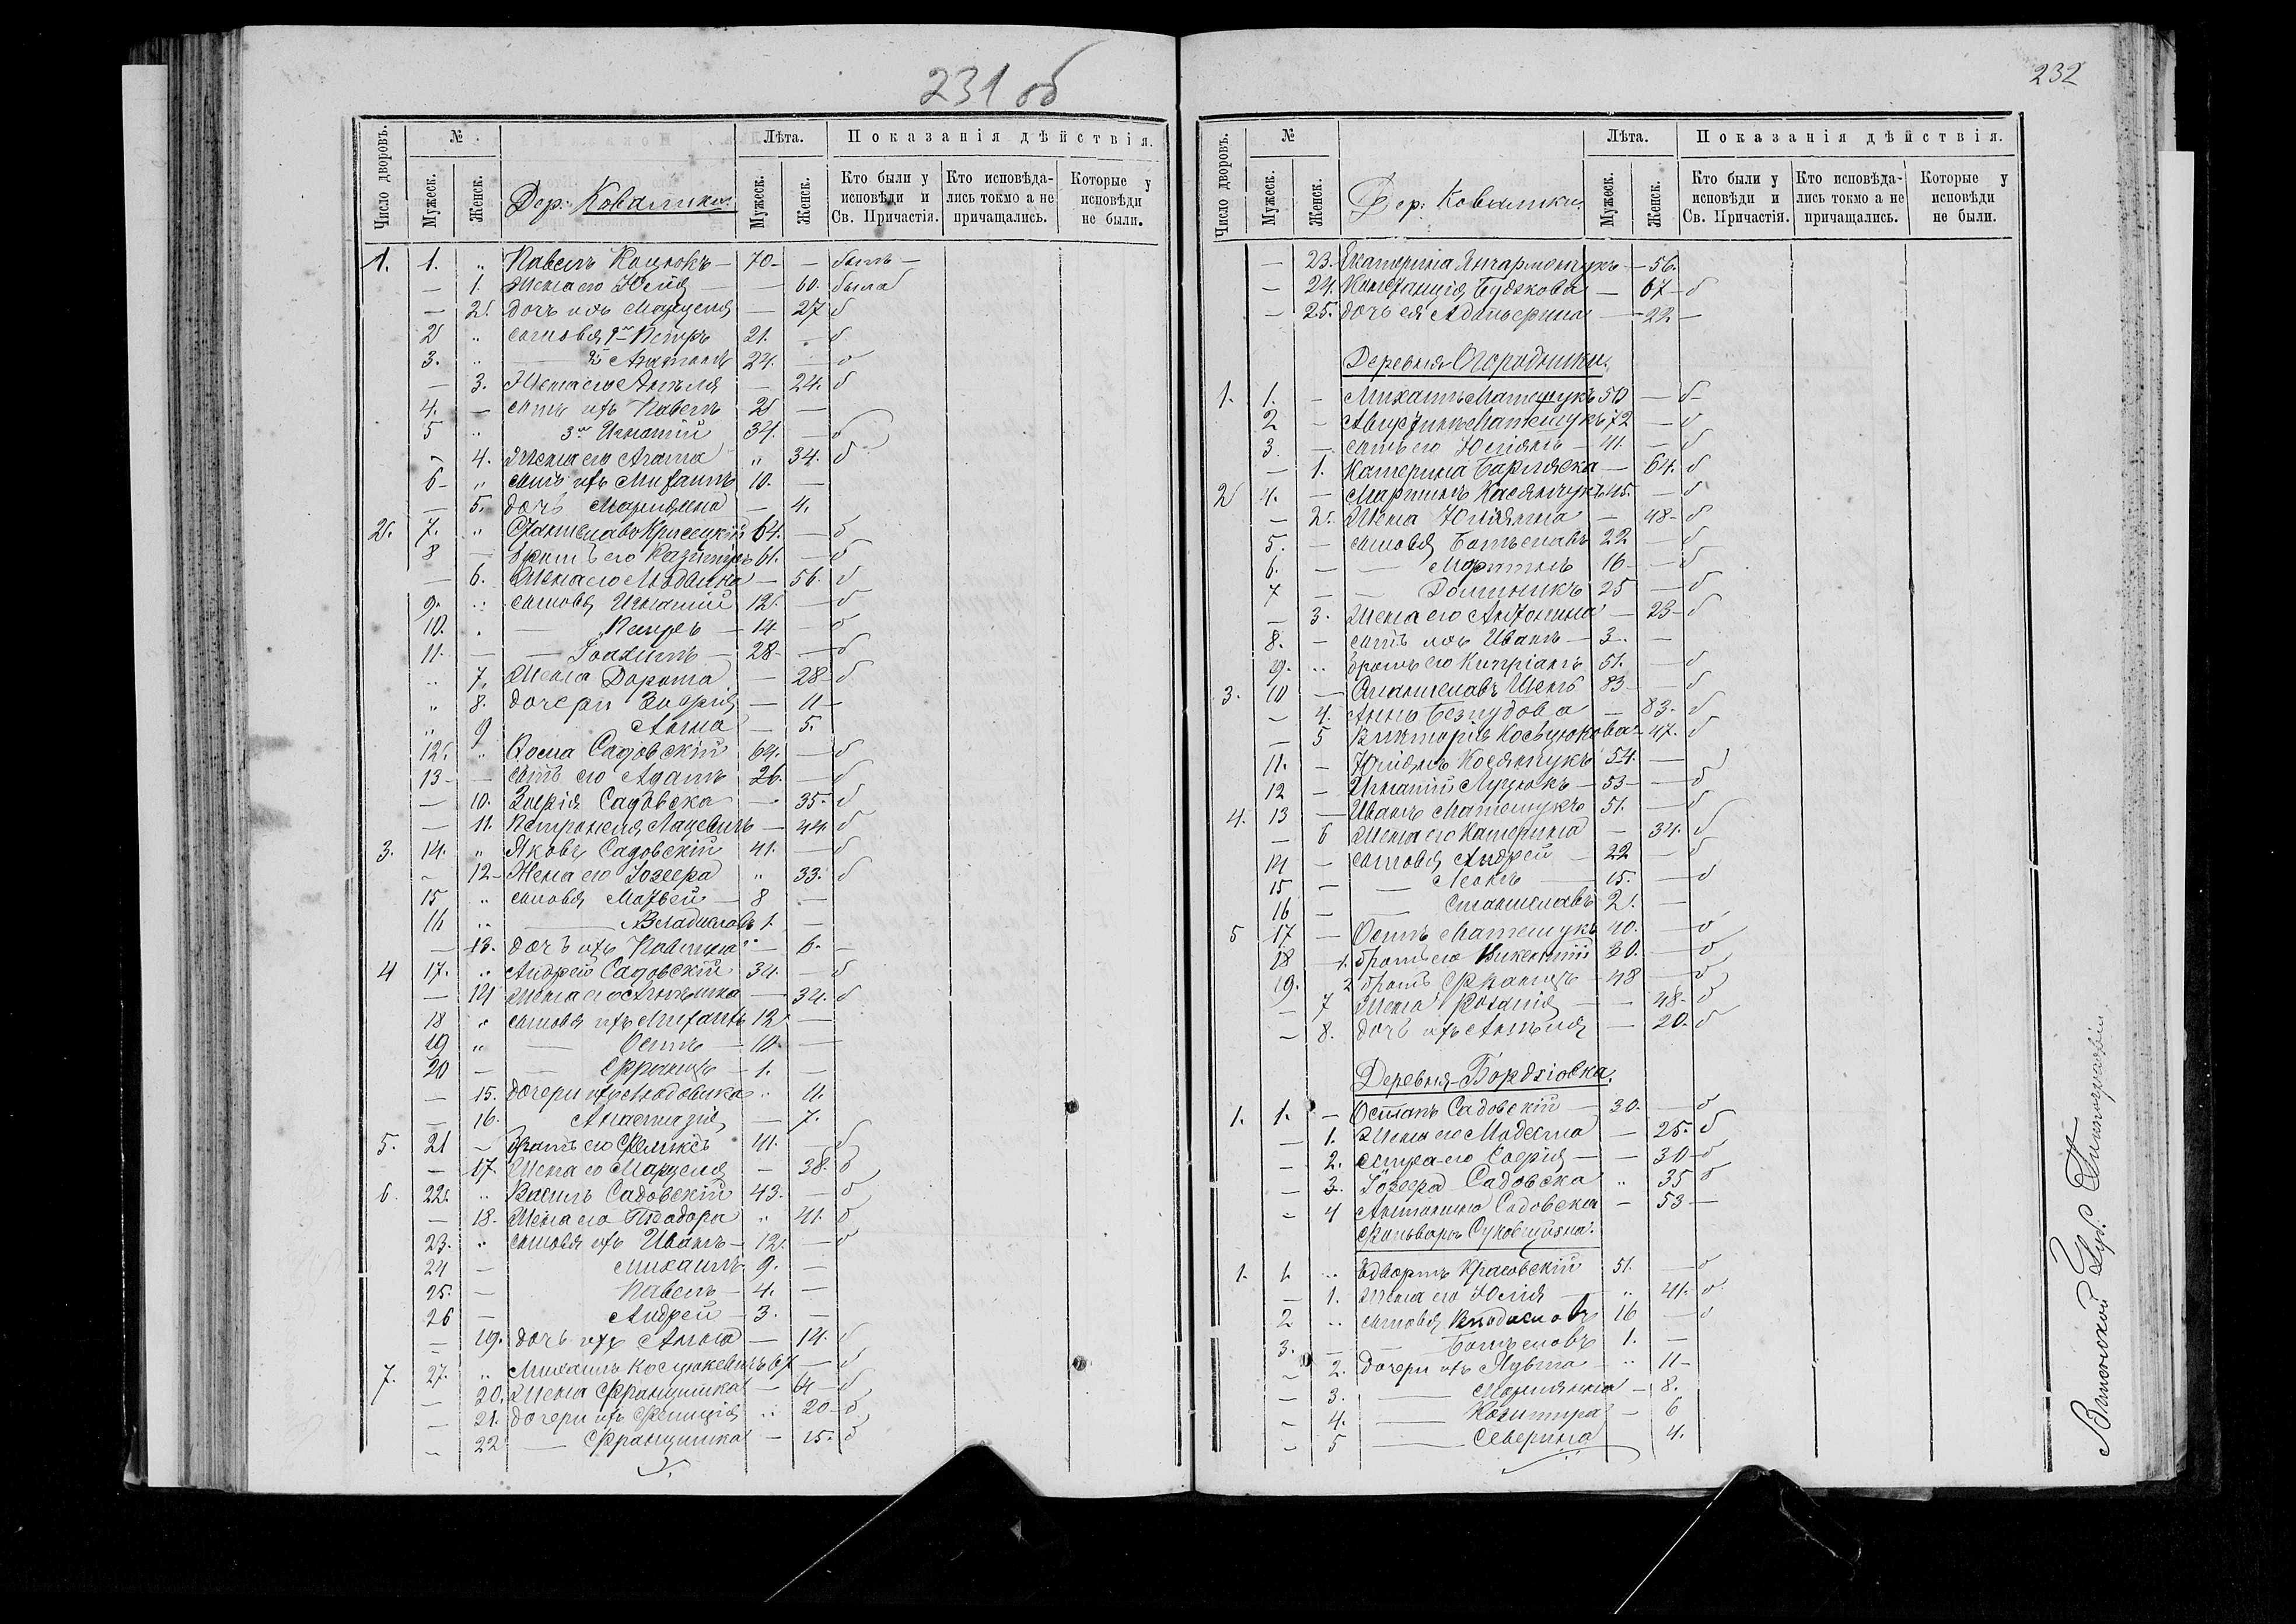 231 об
Число дворовъ. № Лѣта. Показанія дѣйствія.
Мужеск. Женск. Дер: Ковалики. Мужеск. Женск. Кто были у исповѣди и Св. Причастія. Кто исповѣдались токмо а не причащались. Которые у исповѣди не были.
1. 1. " Павелъ Коцюкъ — 70 — — былъ —
— 1. Жена его Юлія — — 60. была
— 2. дочь ихъ Марцеля — 27 б
2 " сыновья 1й Петръ 21. — б
3. " — 2й 24. — б
— 3. Жена его Анѣля — 24. б
4. — сынъ ихъ Павелъ 2 —
5 " 3й Игнатій 34. — б
— 4. Жена его Агата " 34. б
6 — " сынъ ихъ Михаилъ 10. —
— 5. дочь Марцяна — 4.
2. 7. " Станиславъ 64. — б
8 — братъ его Казиміръ 61. — б
— 6. Жена его — 56. б
9. " сыновья Игнатій 12. — б
10. " — Петръ — 14 — б
11. — — Іоахимъ — 28 — б
" 7. Жена Дорота — 28 б
" 8. дочери Зофія — 11 —
" 9 Анна — 5.
12. " Козма Садовскій 64. — б
13 — — сынъ его Адамъ 26. — б
— 10. Зофія Садовска — 35. б
— 11. Петронеля Лацевичъ — 44. б
3. 14. " Яковъ Садовскій 41. — б
— 12 — Жена его Іозефа " 33. б
15 " сыновья Матвей — 8 —
16 " — Владиславъ 1. —
— 13. дочь ихъ Павлина — 6. —
4 17. " Андрей Садовскій 34. — б
— 14 Жена его — 34. б
18 " сыновья ихъ Михаилъ 12 —
19 " — Осипъ — 10 —
20 — — Францъ — 1. —
— 15. дочери ихъ Людовика " 11.
— 16. Анастазія — 7.
5. 21 — братъ его Феликсъ 41. — б
— 17. Жена его Марцеля — 38. б
6. 22. " Василь Садовскій 43. — б
— 18. Жена его Теодора " 41. б
23. " сыновья ихъ Иванъ — 12. — б
24 — Михаилъ 9. —
25. — Павелъ — 4. —
26 — Андрей — 3. —
— 19. дочь ихъ Анна — 14. б
7. 27. " Михаилъ 67 — б
— 20. Жена Францишка — б
— 21. дочери ихъ Фелиція " 20 б
— 22 — Францишка — 15. б
232
Число дворовъ. № Лѣта. Показанія дѣйствія.
Мужеск. Женск. Дер: Ковалики. Мужеск. Женск. Кто были у исповѣди и Св. Причастія. Кто исповѣдались токмо а не причащались. Которые у исповѣди не были.
— 23. Екатерина — 56.
— 24. Констанція — 67 — б
— 25. дочь ея — 22 —
Деревня Огородники.
1. 1. — Михаилъ Матешукъ 50 — б
2 — Августинъ Матешукъ 72 — б
3. — сынъ его Юліянъ — 41. — б
— 1. Катерина — 64. б
2 4. — Мартинъ Касянчукъ 45. — б
— 2. Жена Юліянна — 48 — б
5. — сыновья Болеславъ 22 — б
6. — — Мартинъ 16 — — б
7 — — Доминикъ 25 — б
— 3. Жена его Антонина — 23 — б
8. — сынъ ихъ Иванъ — 3 — —
9. " братъ его Кипріанъ 51. — б
3. 10 — Станиславъ 83 — — б
— 4. Анна — 83. б
— 5 Викторія — 47. б
11. — Юліянъ Косянчукъ 54. —
12 — Игнатій Луцюкъ — 53 — — б
4. 13 — Иванъ Матешукъ 51. — б
— 6 Жена его Катерина — 34. б
14 — сыновья Андрей — 22 — б
15 — — Леонъ — 15. — б
16 — — Станиславъ 2. —
5 17 — Осипъ Матешукъ 40. — б
18 — 1. братъ его Викентій 30. — б
19. 2 братъ Францъ — 48 — б
— 7 Жена Розалія — — 48 — б
— 8. дочь ихъ Анѣля — 20. б
Деревня Бордзіовка.
1. 1. — Остапъ Садовскій — 30. — б
— 1. Жена его — 25. б
— 2. сестра его Софія — — 30 — б
— 3. Іозефа Садовска " 35 б
— 4 Антонина Садовска — 53 —
Фольваркъ
1. 1. " Едвардъ Красовскій 51. — б
— 1. Жена его Юлія — " 41. б
2 " сыновья Владиславъ 16 — б
3. — — Болеславъ 1. —
— 2. дочери ихъ — " 11 —
— 3. — Маріянна — 8.
— 4. — Казимира — 6
— 5 — Северина 4.
Виленской Губ. Типографіи